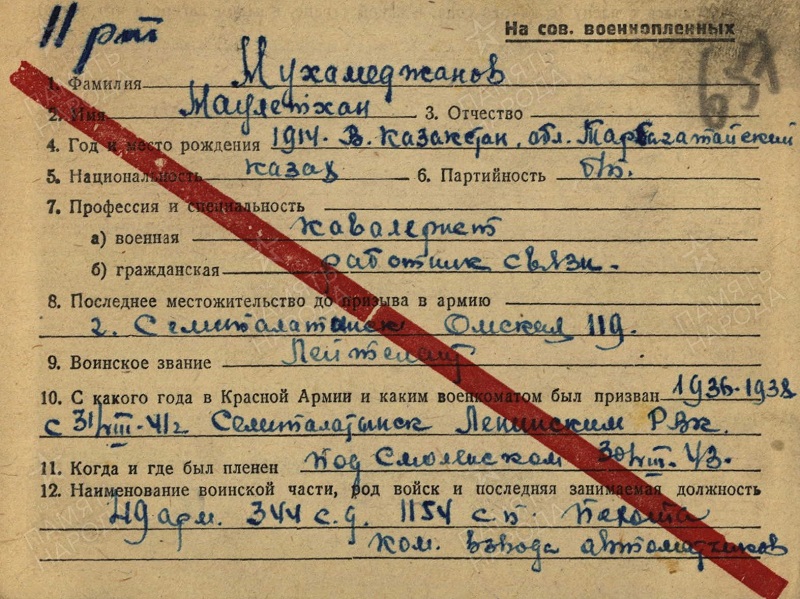 11 рот
На сов. военнопленных
657
1. Фамилия Мухамеджанов
2. Имя Маулетхан 3. Отчество
4. Год и место рождения 1914. В. Казакстан, обл. Тарбагатайский
5. Национальность казах 6. Партийность б/п.
7. Профессия и специальность
а) военная кавалерист
б) гражданская работник связи.
8. Последнее местожительство до призыва в армию
г. Семипалатинск Омская 119.
9. Воинское звание Лейтенант
10. С какого года в Красной Армии и каким военкоматом был призван 1936-1938
с 31/VIII-41г Семипалатинск Ленинским РВК.
11. Когда и где был пленен под Смоленском 30/VIII-43.
12. Наименование воинской части, род войск и последняя занимаемая должность
49 арм. 344 с.д. 1154 с.п. пехота
ком. взвода автоматчиков